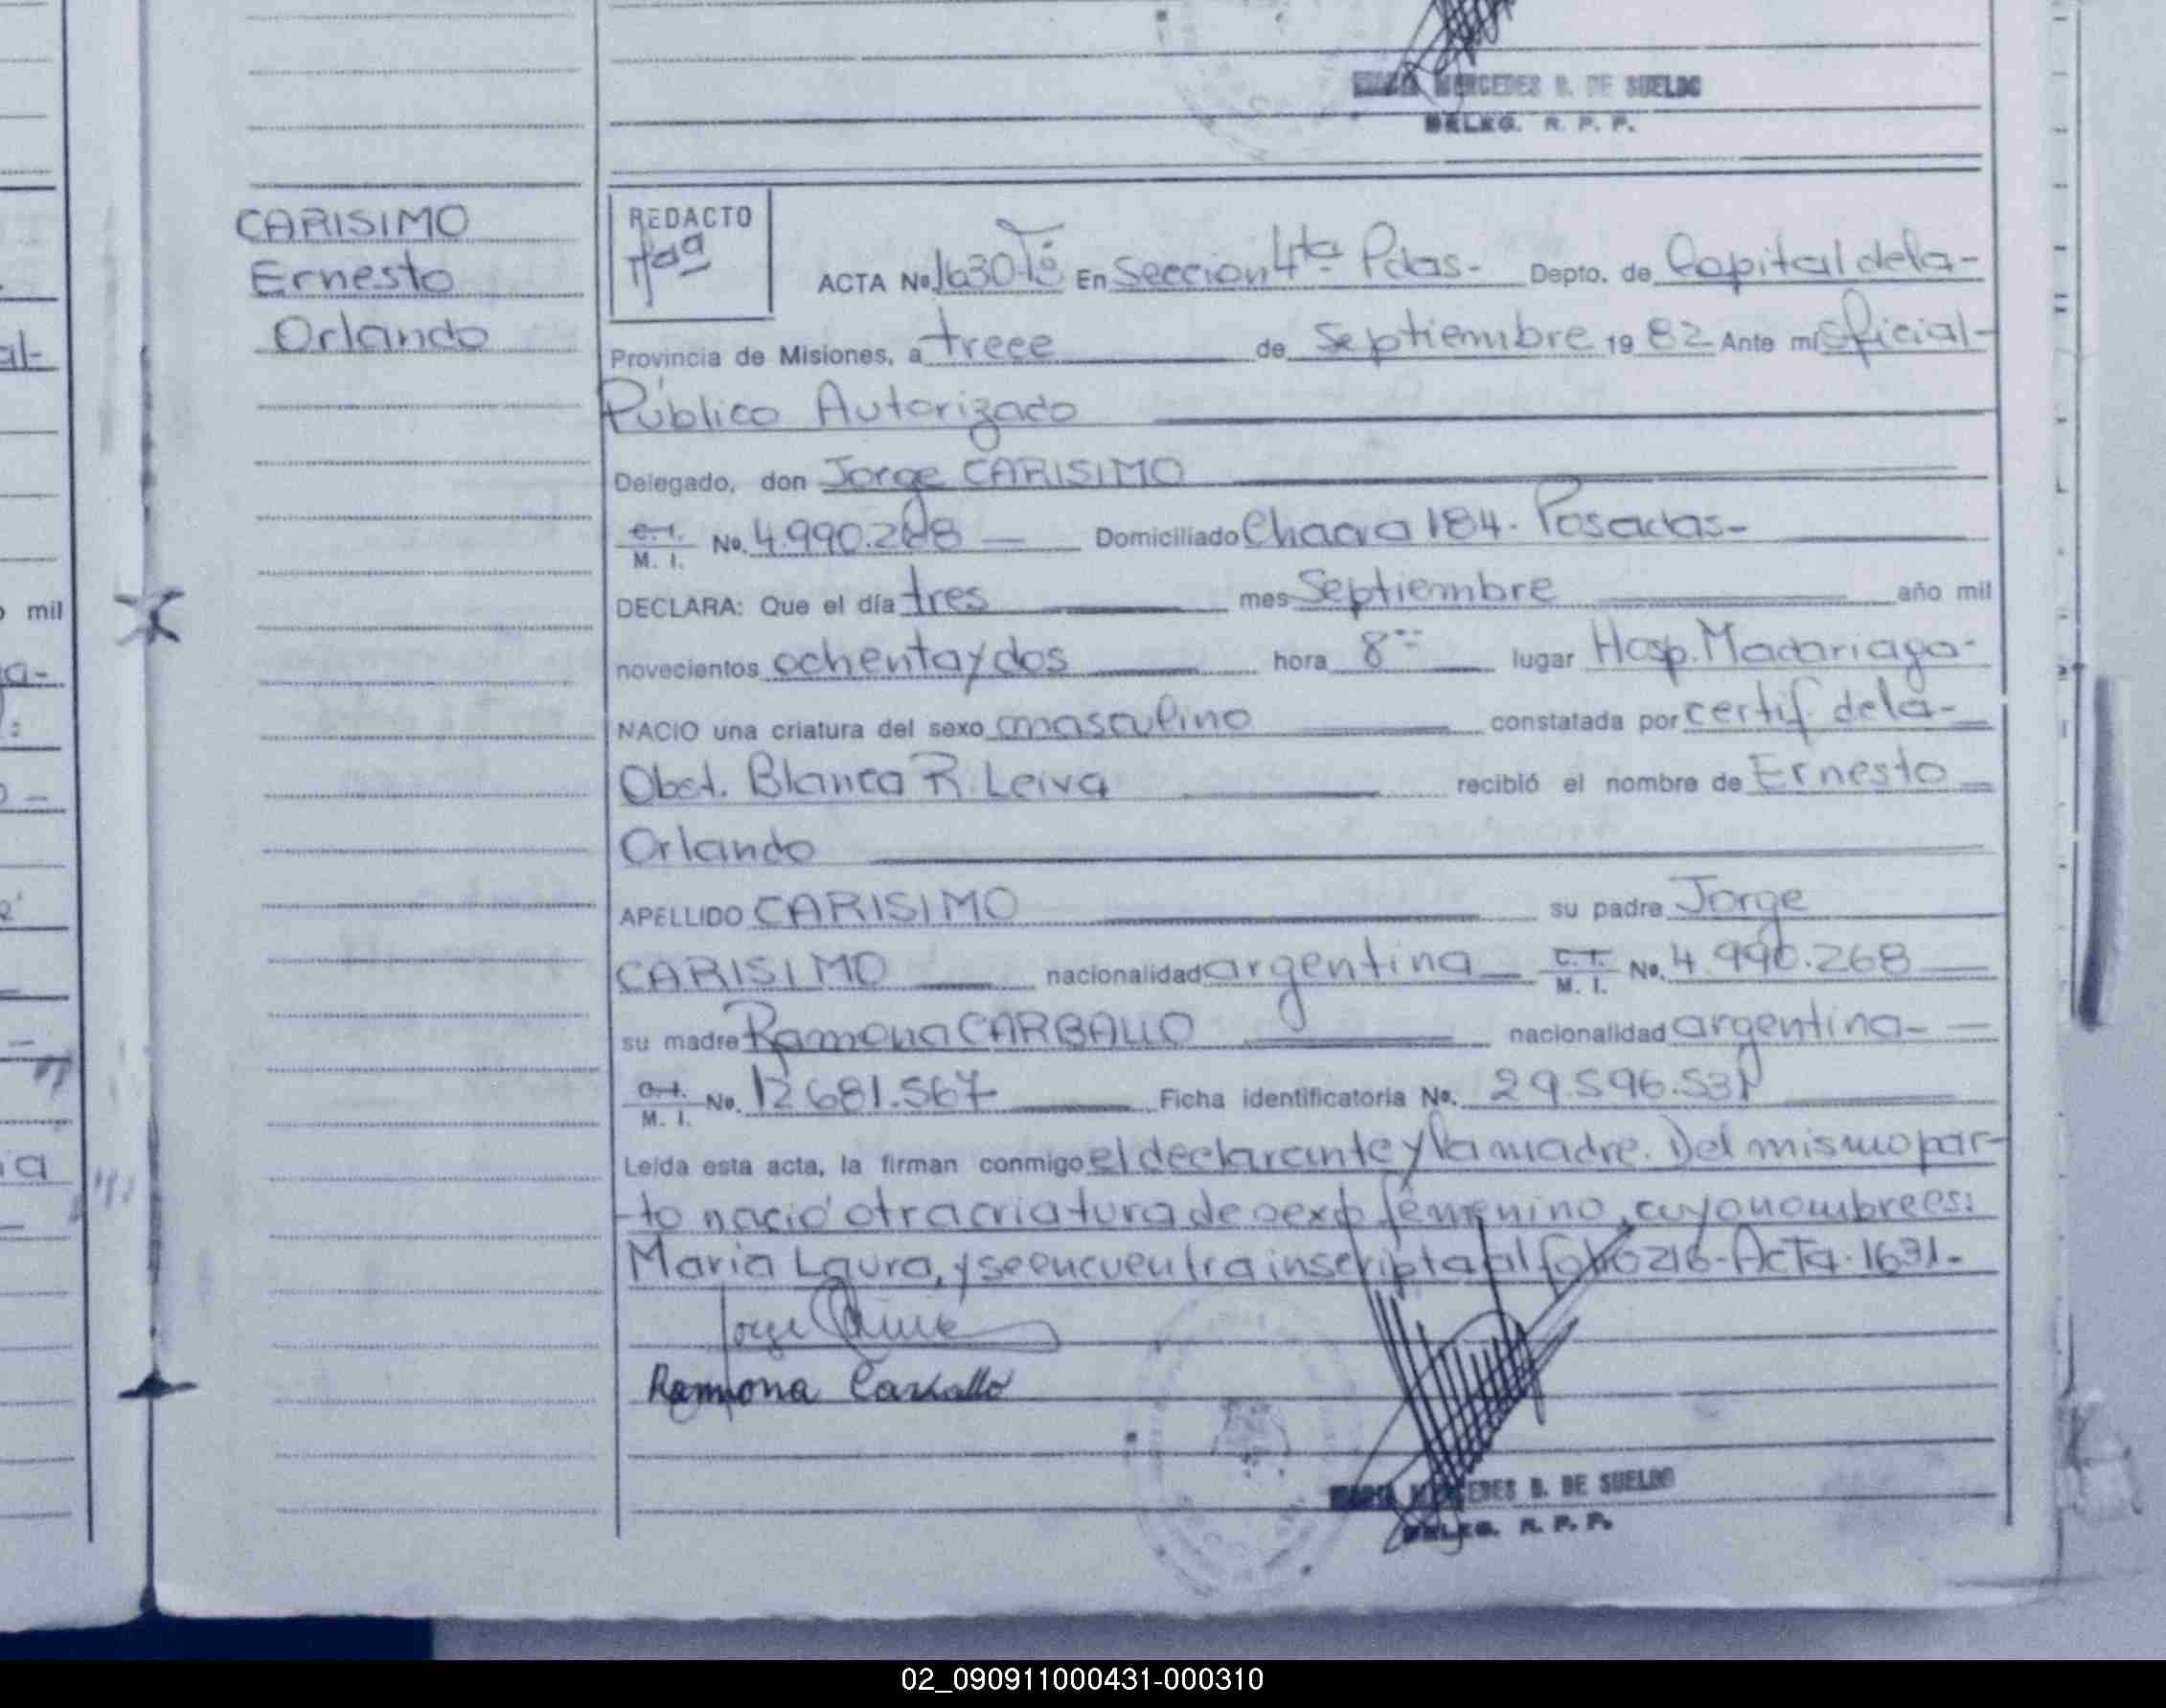 MERCEDES B. DE SUELDO
DELEG. R. P. P.
CARISIMO
Ernesto
Orlando
REDACTO
ACTA No. 1630 Tº En Seccion 4ta Pdas- Depto. de Capital de la-
Provincia de Misiones, a trece de Septiembre 19 82 Ante mí Oficial-
Público Autorizado
Delegado, don Jorge CARISIMO
C.I. M. I. No. 4.990.268 Domiciliado Chacra 184. Posadas-
DECLARA: Que el día tres mes Septiembre año mil
novecientos ochenta y dos hora 8 lugar Hosp. Madariaga-
NACIO una criatura del sexo masculino constatada por certif. de la-
Obst. Blanca R. Leiva recibió el nombre de Ernesto
Orlando
APELLIDO CARISIMO su padre Jorge
CARISIMO nacionalidad argentina C.I. M. I. No. 4.990.268
su madre Ramona CARBALLO nacionalidad argentina-
C.I. M. I. No. 12.681.567 Ficha identificatoria No. 29.596.531
Leida esta acta, la firman conmigo el declarante y la madre. Del mismo par-
-to nació otra criatura de sexo femenino, cuyo nombre es:
Maria Laura, y se encuentra inscripta al folio 216-Acta-1631-
Jorge
Ramona Carballo
MERCEDES B. DE SUELDO
DELEG. R. P. P.
mil
02_090911000431-000310